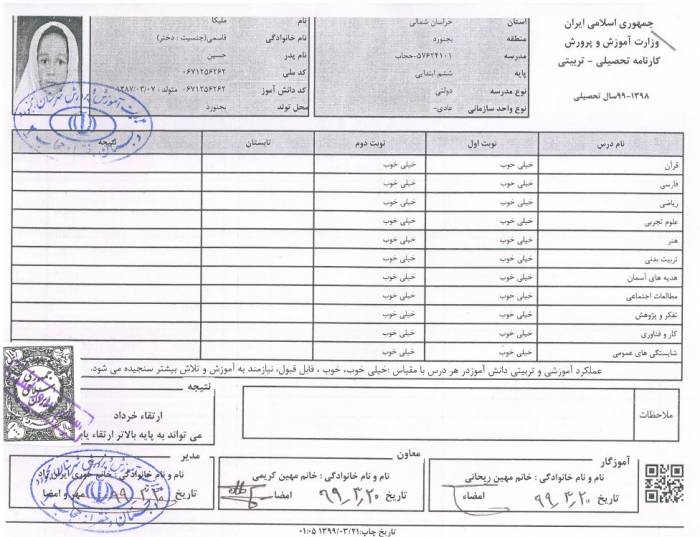 جمهوری اسلامی ایران
وزارت آموزش و پرورش
کارنامه تحصیلی - تربیتی
۹۹-۱۳۹۸سال تحصیلی
استان خراسان شمالی
منطقه بجنورد
مدرسه ۵۷۶۲۴۱۰۱-حجاب
پایه ششم ابتدایی
نوع مدرسه دولتی
نوع واحد سازمانی عادی-
نام ملیکا
نام خانوادگی قاسمی(جنسیت : دختر)
نام پدر حسین
کد ملی ۰۶۷۱۲۵۶۲۶۲
کد دانش آموز ۰۶۷۱۲۵۶۲۶۲ متولد : ۱۳۸۷/۰۳/۰۷
محل تولد بجنورد
نام درس نوبت اول نوبت دوم تابستان نتیجه
قرآن خیلی خوب خیلی خوب
فارسی خیلی خوب خیلی خوب
ریاضی خیلی خوب خیلی خوب
علوم تجربی خیلی خوب خیلی خوب
هنر خیلی خوب خیلی خوب
تربیت بدنی خیلی خوب خیلی خوب
هدیه های آسمان خیلی خوب خیلی خوب
مطالعات اجتماعی خیلی خوب خیلی خوب
تفکر و پژوهش خیلی خوب خیلی خوب
کار و فناوری خیلی خوب خیلی خوب
شایستگی های عمومی خیلی خوب خیلی خوب
عملکرد آموزشی و تربیتی دانش آموزدر هر درس با مقیاس :خیلی خوب، خوب ، قابل قبول، نیازمند به آموزش و تلاش بیشتر سنجیده می شود.
ملاحظات
نتیجه
ارتقاء خرداد
می تواند به پایه بالاتر ارتقاء
آموزگار
نام و نام خانوادگی : خانم مهین ریحانی
تاریخ ۹۹/۳/۲۰ امضاء
معاون
نام و نام خانوادگی : خانم مهین کریمی
تاریخ ۹۹/۳/۲۰ امضاء
مدیر
نام و نام خانوادگی : خانم
تاریخ ۹۹/۳/۲۰ مهر و امضاء
تاریخ چاپ:۱۳۹۹/۰۳/۲۱ ۰۱:۰۵